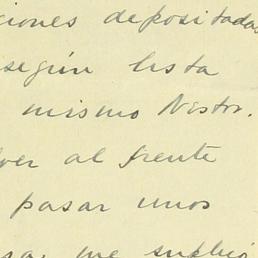 ciones depositadas
según lista
mismo Nestor.
ver al frente
pasar unos
me suplió